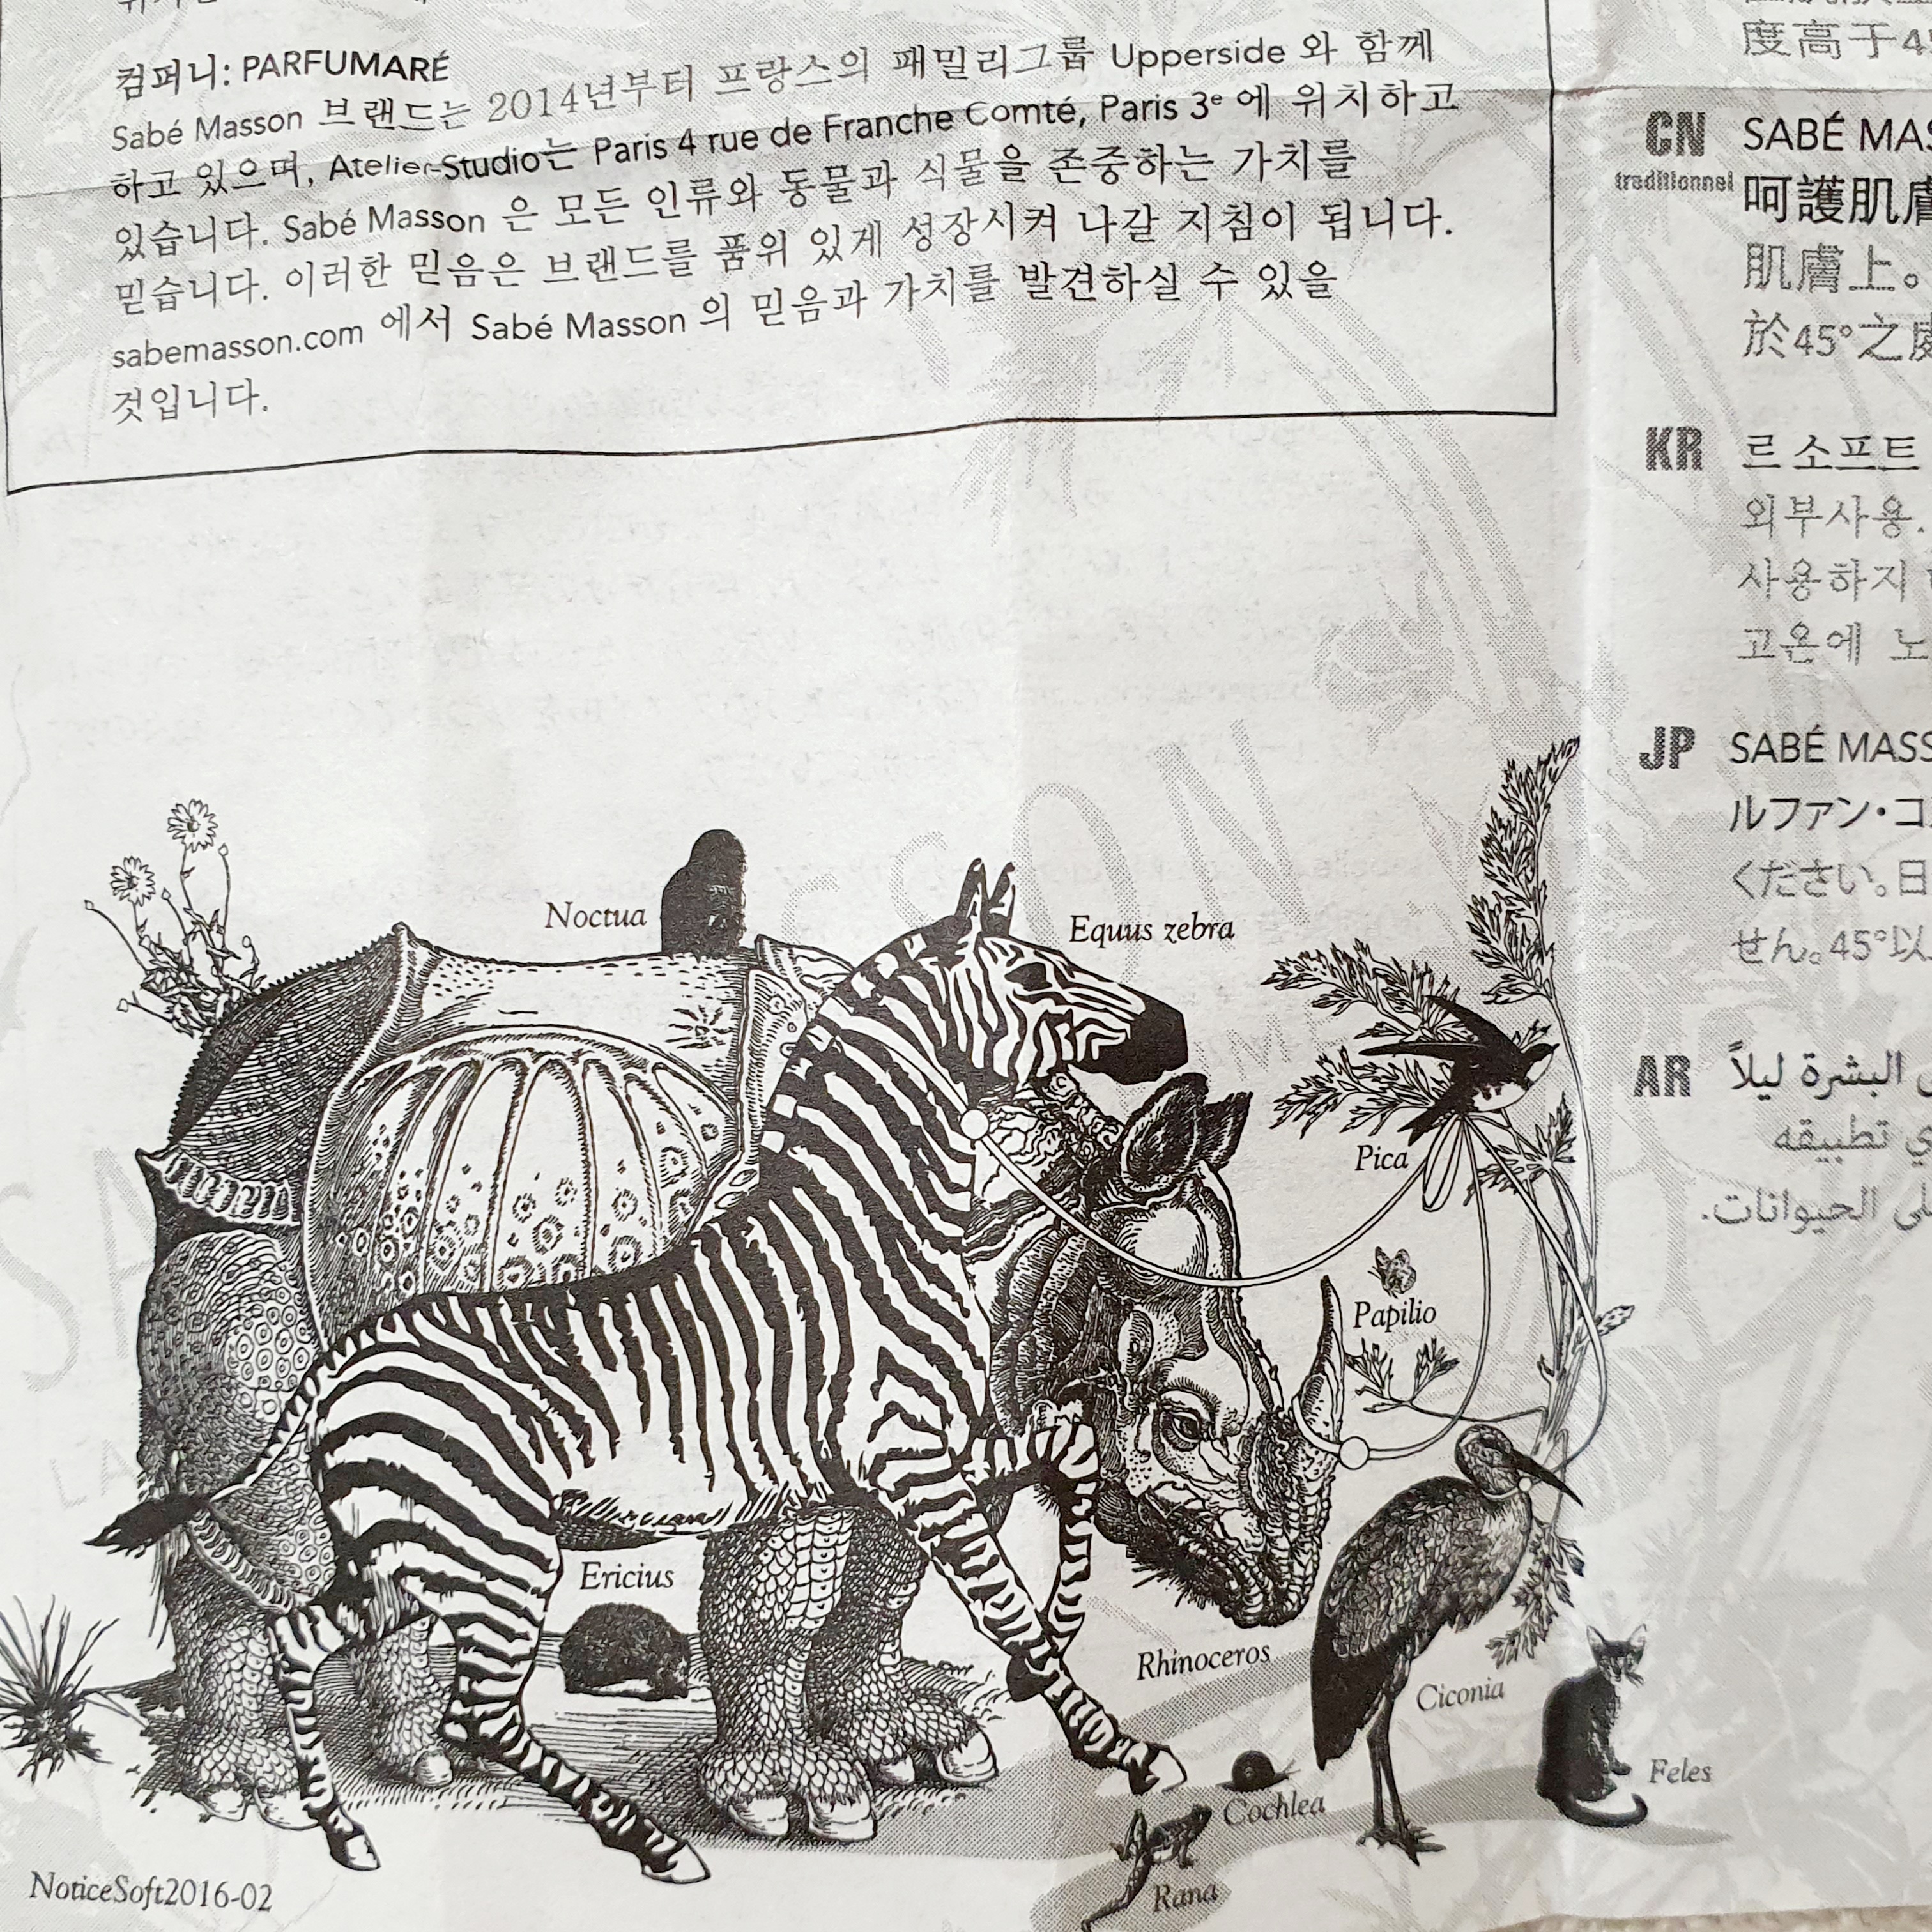 컴퍼니: PARFUMARÉ
Sabé Masson 브랜드는 2014년부터 프랑스의 패밀리그룹 Upperside 와 함께
하고 있으며, Atelier-Studio는 Paris 4 rue de Franche Comté, Paris 3ᵉ 에 위치하고
있습니다. Sabé Masson 은 모든 인류와 동물과 식물을 존중하는 가치를
믿습니다. 이러한 믿음은 브랜드를 품위 있게 성장시켜 나갈 지침이 됩니다.
sabemasson.com 에서 Sabé Masson 의 믿음과 가치를 발견하실 수 있을
것입니다.
度高于
CN SABÉ
traditionnel
呵護肌
肌膚上。
於45°之
KR 르 소프트
외부사용.
사용하지
고온에
JP SABÉ
ルファン・コ
ください。日
せん。45°以
AR البشرة ليلاً
تطبيقه
الحيوانات.
Noctua
Equus zebra
Pica
Papilio
Ericius
Rhinoceros
Ciconia
Feles
Cochlea
Rana
NoticeSoft2016-02
SA
SSON
LA